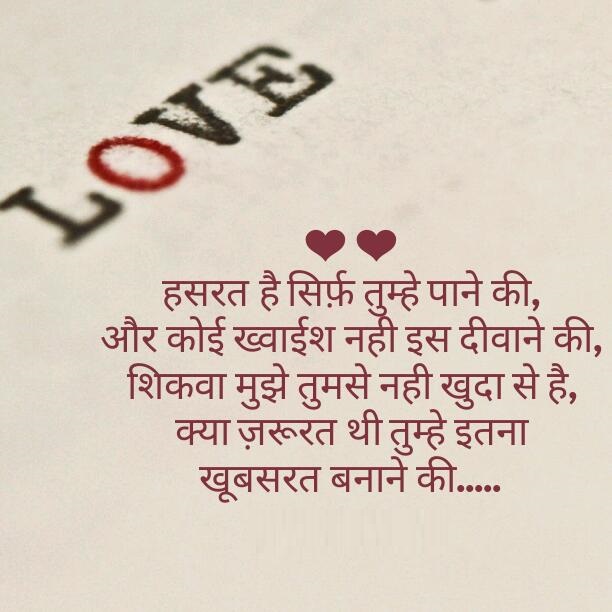 LOVE
❤ ❤
हसरत है सिर्फ़ तुम्हे पाने की,
और कोई ख्वाईश नही इस दीवाने की,
शिकवा मुझे तुमसे नही खुदा से है,
क्या ज़रूरत थी तुम्हे इतना
खूबसरत बनाने की.....